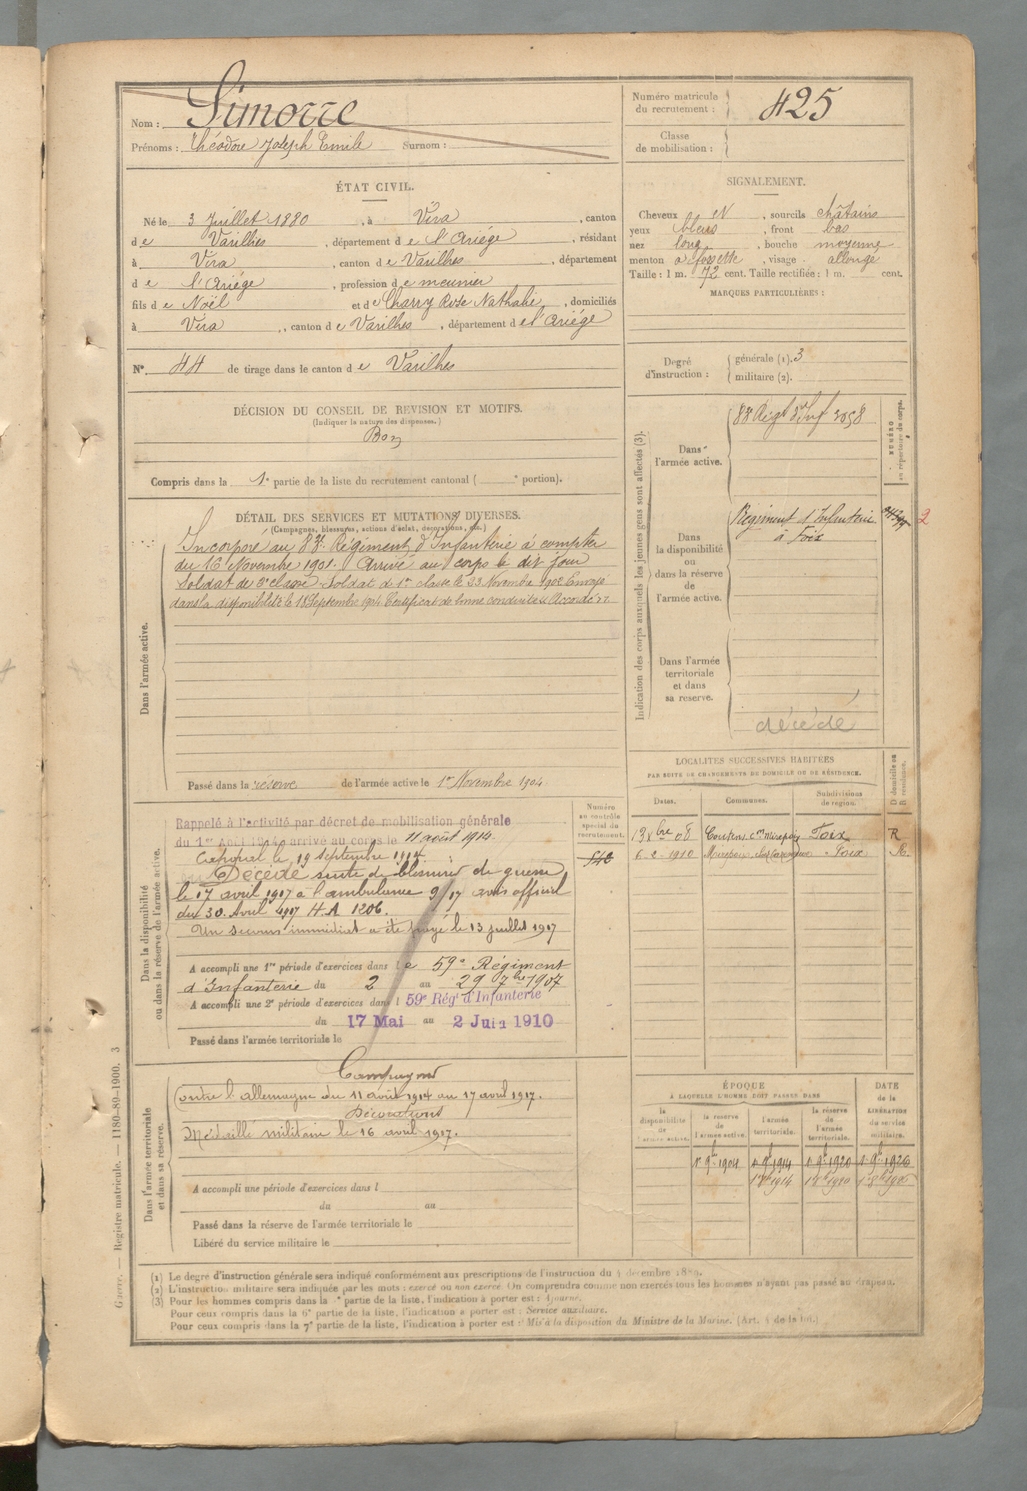 Nom : Simorre
Prénoms : Théodore Joseph Emile Surnom :
Numéro matricule du recrutement : 425
Classe de mobilisation :
ÉTAT CIVIL.
Né le 3 Juillet 1880, à Vira, canton
de Varilhes, département de l'Ariège, résidant
à Vira, canton de Varilhes, département
de l'Ariège, profession de meunier
fils de Noël et de Charry Rose Nathalie, domiciliés
à Vira, canton de Varilhes, département de l'Ariège
N° 44 de tirage dans le canton de Varilhes
SIGNALEMENT.
Cheveux N, sourcils châtains
yeux bleus, front bas
nez long, bouche moyenne
menton à fossette, visage allongé
Taille : 1 m. 72 cent. Taille rectifiée : 1 m. cent.
MARQUES PARTICULIÈRES :
Degré d'instruction :
générale (1). 3
militaire (2).
DÉCISION DU CONSEIL DE REVISION ET MOTIFS.
(Indiquer la nature des dispenses.)
Bon
Compris dans la 1e partie de la liste du recrutement cantonal ( e portion).
DÉTAIL DES SERVICES ET MUTATIONS DIVERSES.
(Campagnes, blessures, actions d'éclat, décorations, etc.)
Dans l'armée active.
Incorporé au 83e Régiment d'Infanterie à compter
du 16 Novembre 1901. Arrivé au corps le dit jour
Soldat de 2e classe. Soldat de 1re classe le 23 Novembre 1902 Envoyé
dans la disponibilité le 18 Septembre 1904. Certificat de bonne conduite « Accordé ».
Passé dans la réserve de l'armée active le 1er Novembre 1904
Indication des corps auxquels les jeunes gens sont affectés (3).
NUMÉRO au répertoire du corps.
Dans l'armée active.
83e Régt d'Inf 3058
Dans la disponibilité ou dans la réserve de l'armée active.
Régiment d'Infanterie
à Foix
2
Dans l'armée territoriale et dans sa réserve.
décédé
LOCALITÉS SUCCESSIVES HABITÉES
PAR SUITE DE CHANGEMENTS DE DOMICILE OU DE RÉSIDENCE.
Dates. Communes. Subdivisions de région. D domicile ou R résidence.
13 Xbre 08 Coutens con Mirepoix Foix R
6-2-1910 Mirepoix Foix R.
Dans la disponibilité ou dans la réserve de l'armée active.
Numéro au contrôle spécial du recrutement.
Rappelé à l'activité par décret de mobilisation générale
du 1er Août 1914, arrivé au corps le 11 août 1914.
le 19 septembre 1914.
Décédé suite de blessures de guerre
le 17 avril 1917 à l'ambulance 9/17 avis officiel
du 30 Avril 1917 H.A 1206.
Un secours immédiat a été payé le 13 juillet 1917
A accompli une 1re période d'exercices dans le 59e Régiment
d'Infanterie du 2 au 29 7bre 1907
A accompli une 2e période d'exercices dans l 59e Régt d'Infanterie
du 17 Mai au 2 Juin 1910
Passé dans l'armée territoriale le
Dans l'armée territoriale et dans sa réserve.
Campagnes
Contre l'allemagne du 11 août 1914 au 17 avril 1917.
Décorations
Médaille militaire le 16 avril 1917.
A accompli une période d'exercices dans l
du au
Passé dans la réserve de l'armée territoriale le
Libéré du service militaire le
ÉPOQUE
À LAQUELLE L'HOMME DOIT PASSER DANS
la disponibilité de l'armée active. la réserve de l'armée active. l'armée territoriale. la réserve de l'armée territoriale.
DATE de la LIBÉRATION du service militaire.
1er 9bre 1904 1er 9bre 1914 1er 9bre 1920 1er 9bre 1926
(1) Le degré d'instruction générale sera indiqué conformément aux prescriptions de l'instruction du 4 décembre 1889.
(2) L'instruction militaire sera indiquée par les mots : exercé ou non exercé. On comprendra comme non exercés tous les hommes n'ayant pas passé au drapeau.
(3) Pour les hommes compris dans la e partie de la liste, l'indication à porter est : Ajourné.
Pour ceux compris dans la 6e partie de la liste, l'indication à porter est : Service auxiliaire.
Pour ceux compris dans la 7e partie de la liste, l'indication à porter est : Mis à la disposition du Ministre de la Marine. (Art. 4 de la loi.)
Guerre. — Registre matricule. — 1180-89-1900. 3